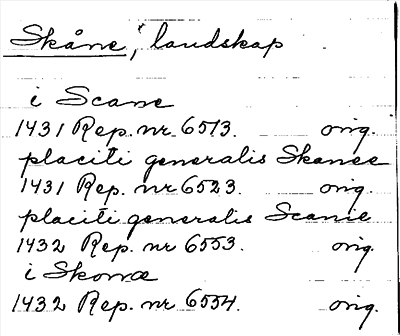 Skåne, landskap
i Scane
1431 Rep. nr 6513. orig.
placiti generalis Skanee
1431 Rep. nr 6523. orig.
placiti generalis Scanie
1432 Rep. nr 6553. orig.
i Skonæ
1432 Rep. nr 6554. orig.